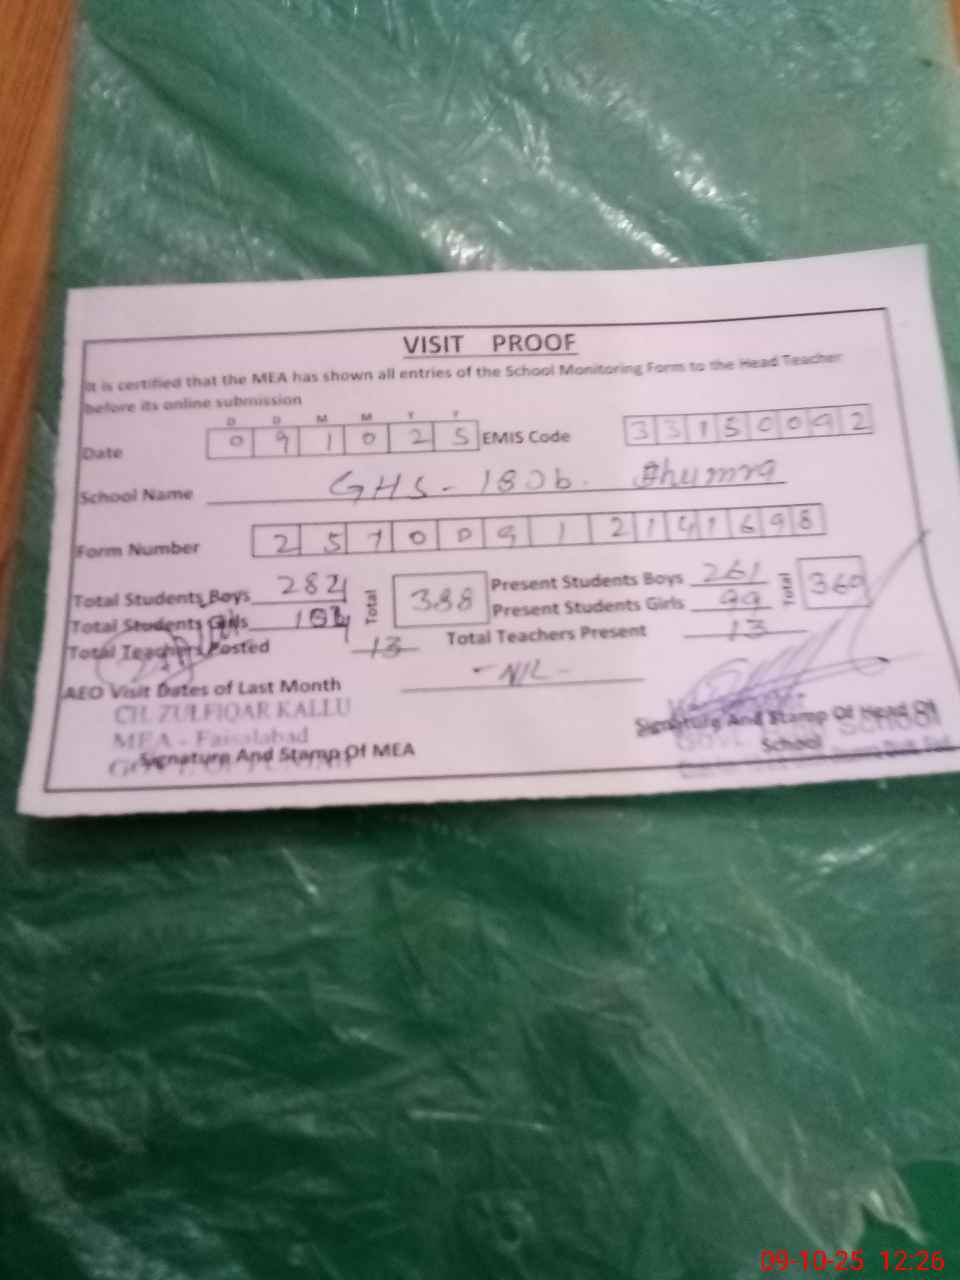 VISIT PROOF
It is certified that the MEA has shown all entries of the School Monitoring Form to the Head Teacher
before its online submission
D D M M Y Y
Date 0 9 1 0 2 5 EMIS Code 3 3 1 5 0 0 9 2
School Name GHS-
Form Number 2 5 7 0 0 9 1 2 1 4 1 6 9 8
Total Students Boys 284 Total 388 Present Students Boys 261 Total 360
Total Students Girls Present Students Girls 99
Total Teachers Posted 13 Total Teachers Present 13
AEO Visit Dates of Last Month - NIL -
CH. ZULFIQAR KALLU
MEA - Faisalabad
Signature And Stamp Of MEA
Signature And Stamp Of Head Of
School
09-10-25 12:26